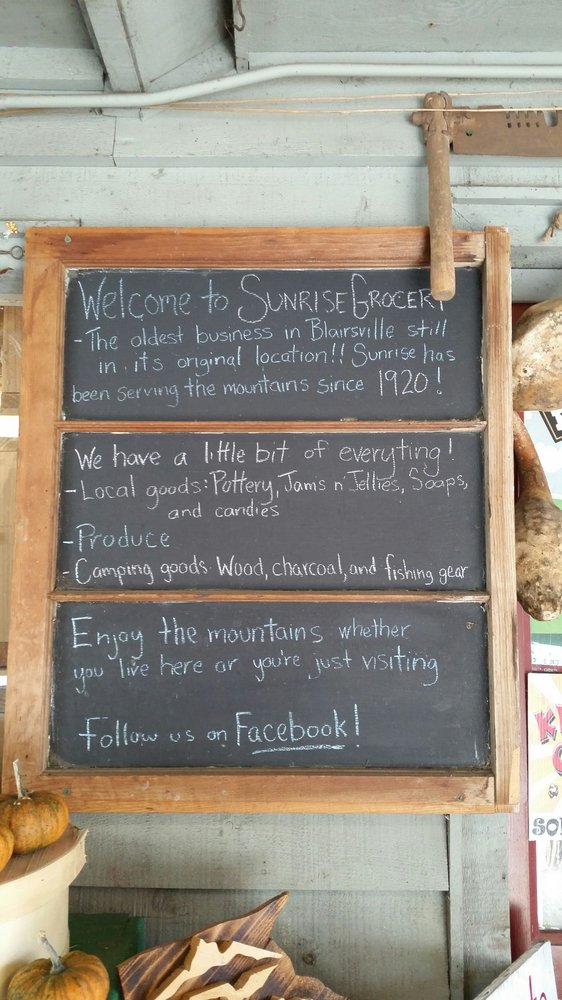 Welcome to SUNRISE GROCERY
- The oldest business in Blairsville still
in its original location!! Sunrise has
been serving the mountains since 1920!
We have a little bit of everyting!
- Local goods: Pottery, Jams n' Jellies, Soaps,
and candies
- Produce
- Camping goods Wood, charcoal, and fishing gear
Enjoy the mountains whether
you live here or you're just visiting
Follow us on Facebook!